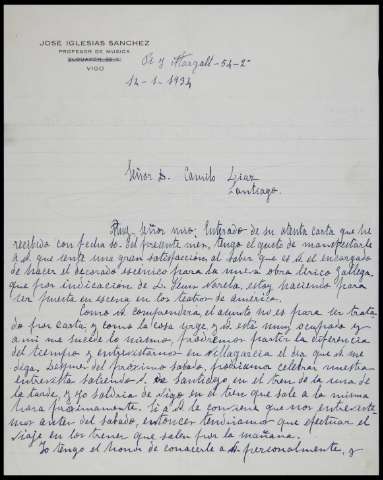 JOSE IGLESIAS SANCHEZ
PROFESOR DE MUSICA
VIGO
Pi y Margall-54-2º
14-1-1934
Señor D. Camilo Diaz
Santiago.
Muy Señor mio: Enterado de su atenta carta que he
recibido con fecha 10 del presente mes, tengo el gusto de manifestarle
a V. que sente una gran satisfacción al saber que es V. el encargado
de hacer el decorado escénico para la nueva obra lírica Gallega
que por indicación de D. Varela, estoy haciendo para
ser puesta en escena en los teatros de america.
Como V. comprendera, el asunto no es para ser trata-
do por carta y como la cosa urge, y V. está muy ocupado y
a mi me sucede lo mismo, podremos partir la diferencia
del tiempo y entrevistarnos en Villagarcia el dia que V. me
diga. Despues del proximo sabado, podriamos celebrar nuestra
entrevista saliendo V. de Santiago en el tren de la una de
la tarde, y yo saldria de Vigo en el tren que sale a la misma
hora proximamente. Si a V. le conviene que nos entreviste-
mos antes del sabado, entonces tendriamos que efectuar el
viaje en los trenes que salen por la mañana.
Yo tengo el honor de conocerle a V. personalmente, y